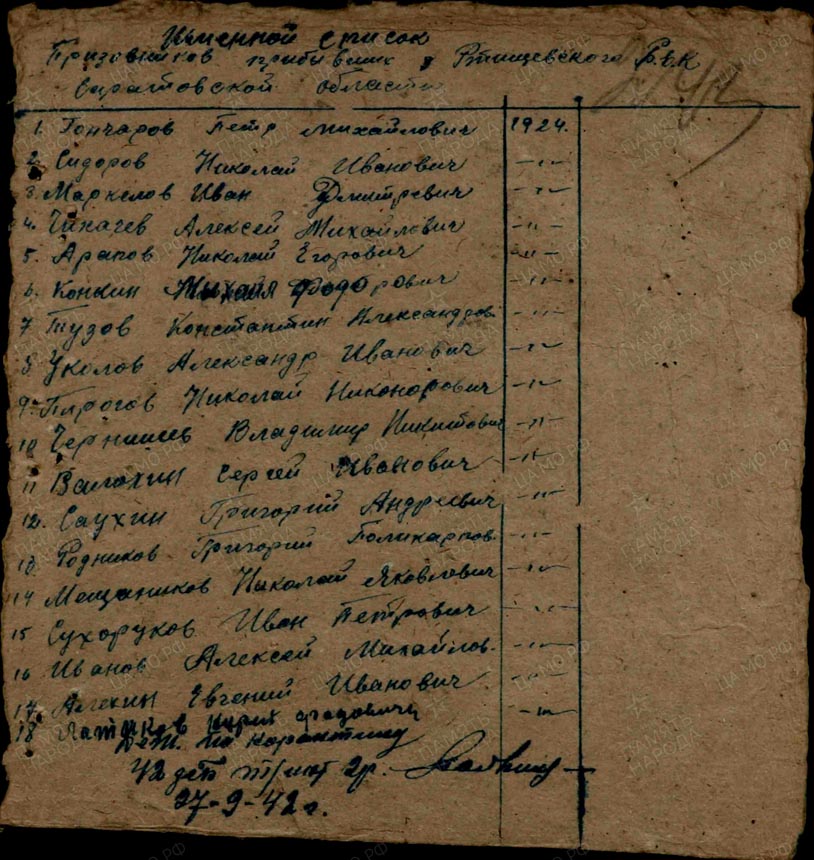 Именной список
Призовников прибывших з Ртищевского Р.В.К
Саратовской области
1. Гончаров Петр Михайлович 1924.
2. Сидоров Николай Иванович -"-
3. Маркелов Иван Дмитревич -"-
4. Чихачев Алексей Михайлович -"-
5. Арапов Николай Егорович -"-
6. Конкин Михаил Федорович -"-
7 Тузов Константин Александров. -"-
8 Уколов Александр Иванович -"-
9. Пирогов Николай Никонорович -"-
10 Чернышев Владимир Никитович -"-
11 Валахин Сергей Иванович -"-
12. Саухин Григорий Андреевич -"-
13. Родников Григорий Поликарпов. -"-
14 Мещаников Николай Яковлевич -"-
15 Сухоруков Иван Петрович -"-
16 Иванов Алексей Михайлов. -"-
17 Алехин Евгений Иванович -"-
18 -"-
по карантину
42 зсп 2р.
27-9-42 г.